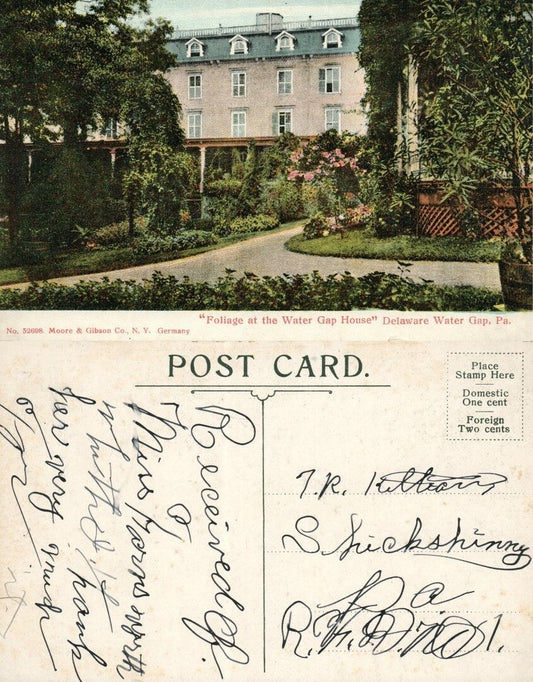 "Foliage at the Water Gap House" Delaware Water Gap, Pa.
No. 52608. Moore & Gibson Co., N. Y. Germany
POST CARD.
Place
Stamp Here
Domestic
One cent
Foreign
Two cents
Received of
Miss
thank
her very much
for
T. R.
Shickshinny
Pa
R. F. D. No 1.